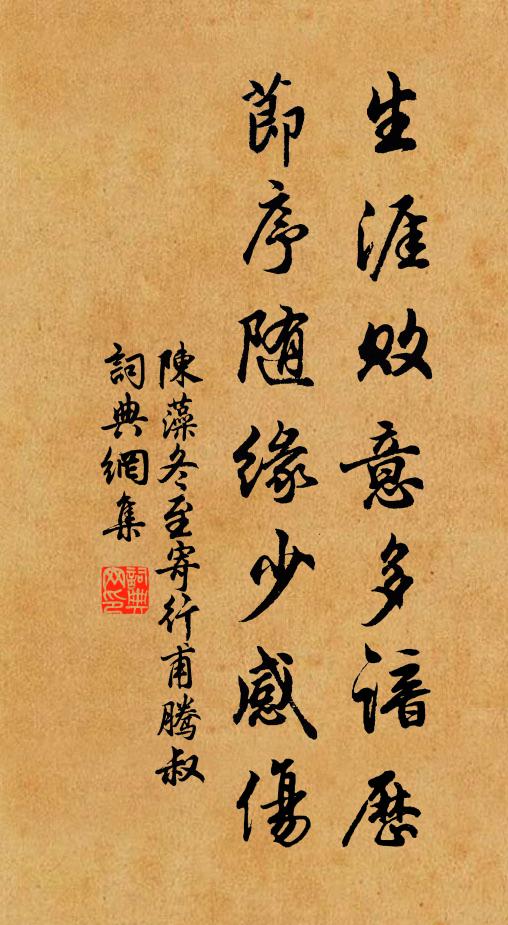 生涯敗意多諳歷
節序随緣少感傷
陳藻冬至寄行甫騰叔
詞典網集
詞典网印